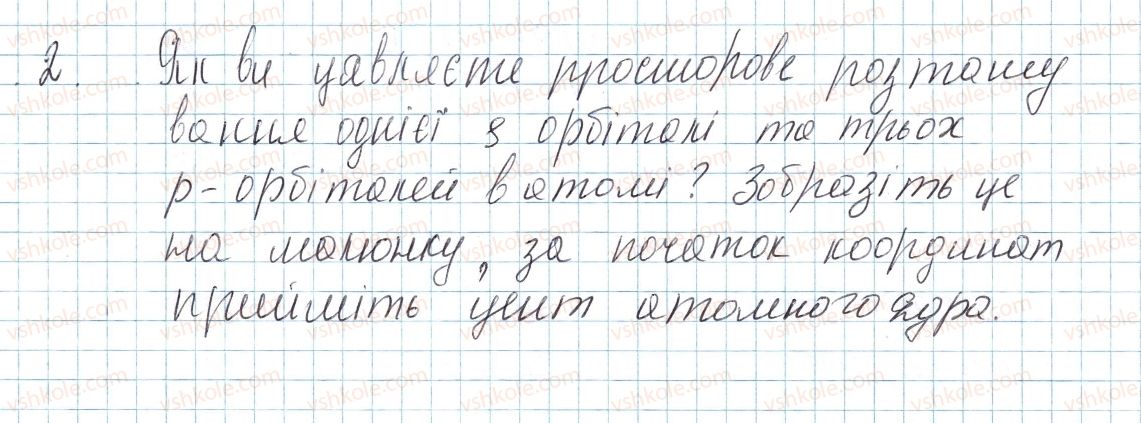 2. Як ви уявляєте просторове розташу
вання однієї s орбіталі та трьох
р-орбіталей в атомі? Зобразіть це
на малюнку, за початок координат
прийміть цент атомного ядра.